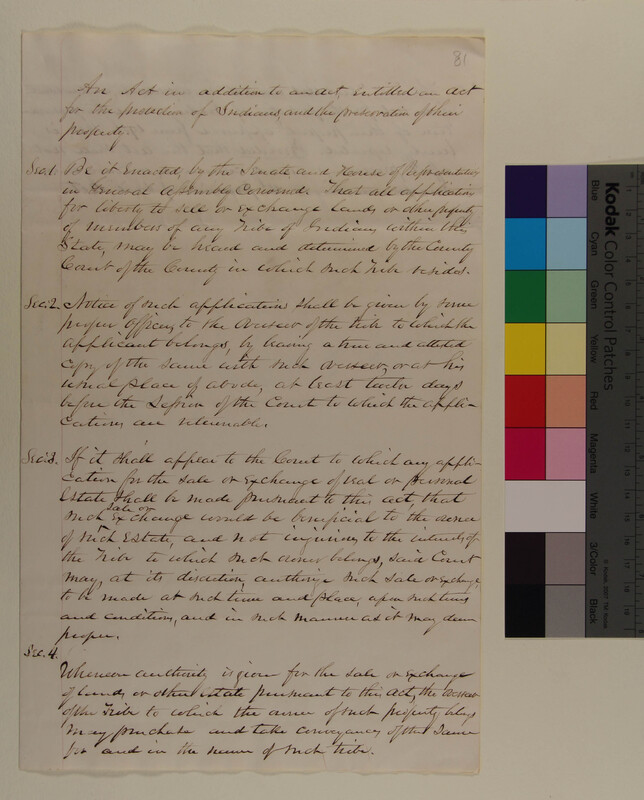 81
An Act in addition to an act, entitled an act
for the protection of Indians, and the preservation of their
property.
Sec. 1. Be it Enacted, by the Senate and House of Representatives
in General Assembly Convened. That all applications
for liberty to sell or exchange lands or other property
of members of any Tribe of Indians within this
State, may be heard and determined by the County
Court of the County in which such Tribe resides.
Sec. 2. Notice of such applications shall be given by some
proper officer, to the overseer of the tribe to which the
applicant belongs, by leaving a true and attested
copy of the same with such overseer, or at his
usual place of abode, at least twelve days
before the Session of the Court to which the appli-
cations are returnable.
Sec. 3. If it shall appear to the Court to which any appli-
cation for the sale or exchange of real or personal
Estate shall be made pursuant to this act, that
such sale or Exchange would be beneficial to the owner
of such Estate, and not injurious to the interests of
the Tribe to which such owner belongs, said Court
may, at its discretion, authorize such sale or exchange,
to be made at such time and place, upon such terms
and conditions, and in such manner as it may deem
proper.
Sec. 4.
Whenever authority is given for the sale or exchange
of lands or other estate pursuant to this act, the overseer
of the Tribe to which the owner of such property belongs
may purchase and take conveyances of the same
for and in the name of such tribe.
Kodak Color Control Patches
Blue
Cyan
Green
Yellow
Red
Magenta
White
3/Color
Black